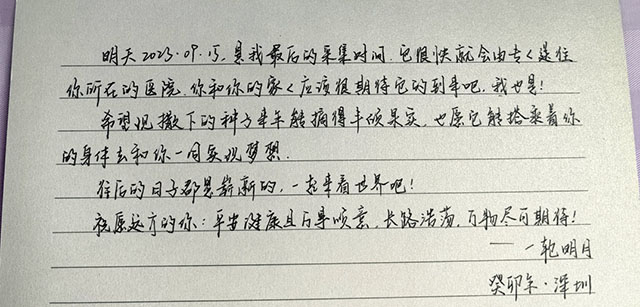 明天2023.09.15.是我最后的采集时间.它很快就会由专人送往
你所在的医院.你和你的家人应该很期待它的到来吧.我也是!
希望现撒下的种子来年能摘得丰硕果实.也愿它能搭乘着你
的身体去和你一同实现梦想.
往后的日子都是崭新的,一起来看世界吧!
祝愿远方的你:平安健康且万事顺意.长路浩荡,万物尽可期待!
——一轮明月
癸卯年·深圳